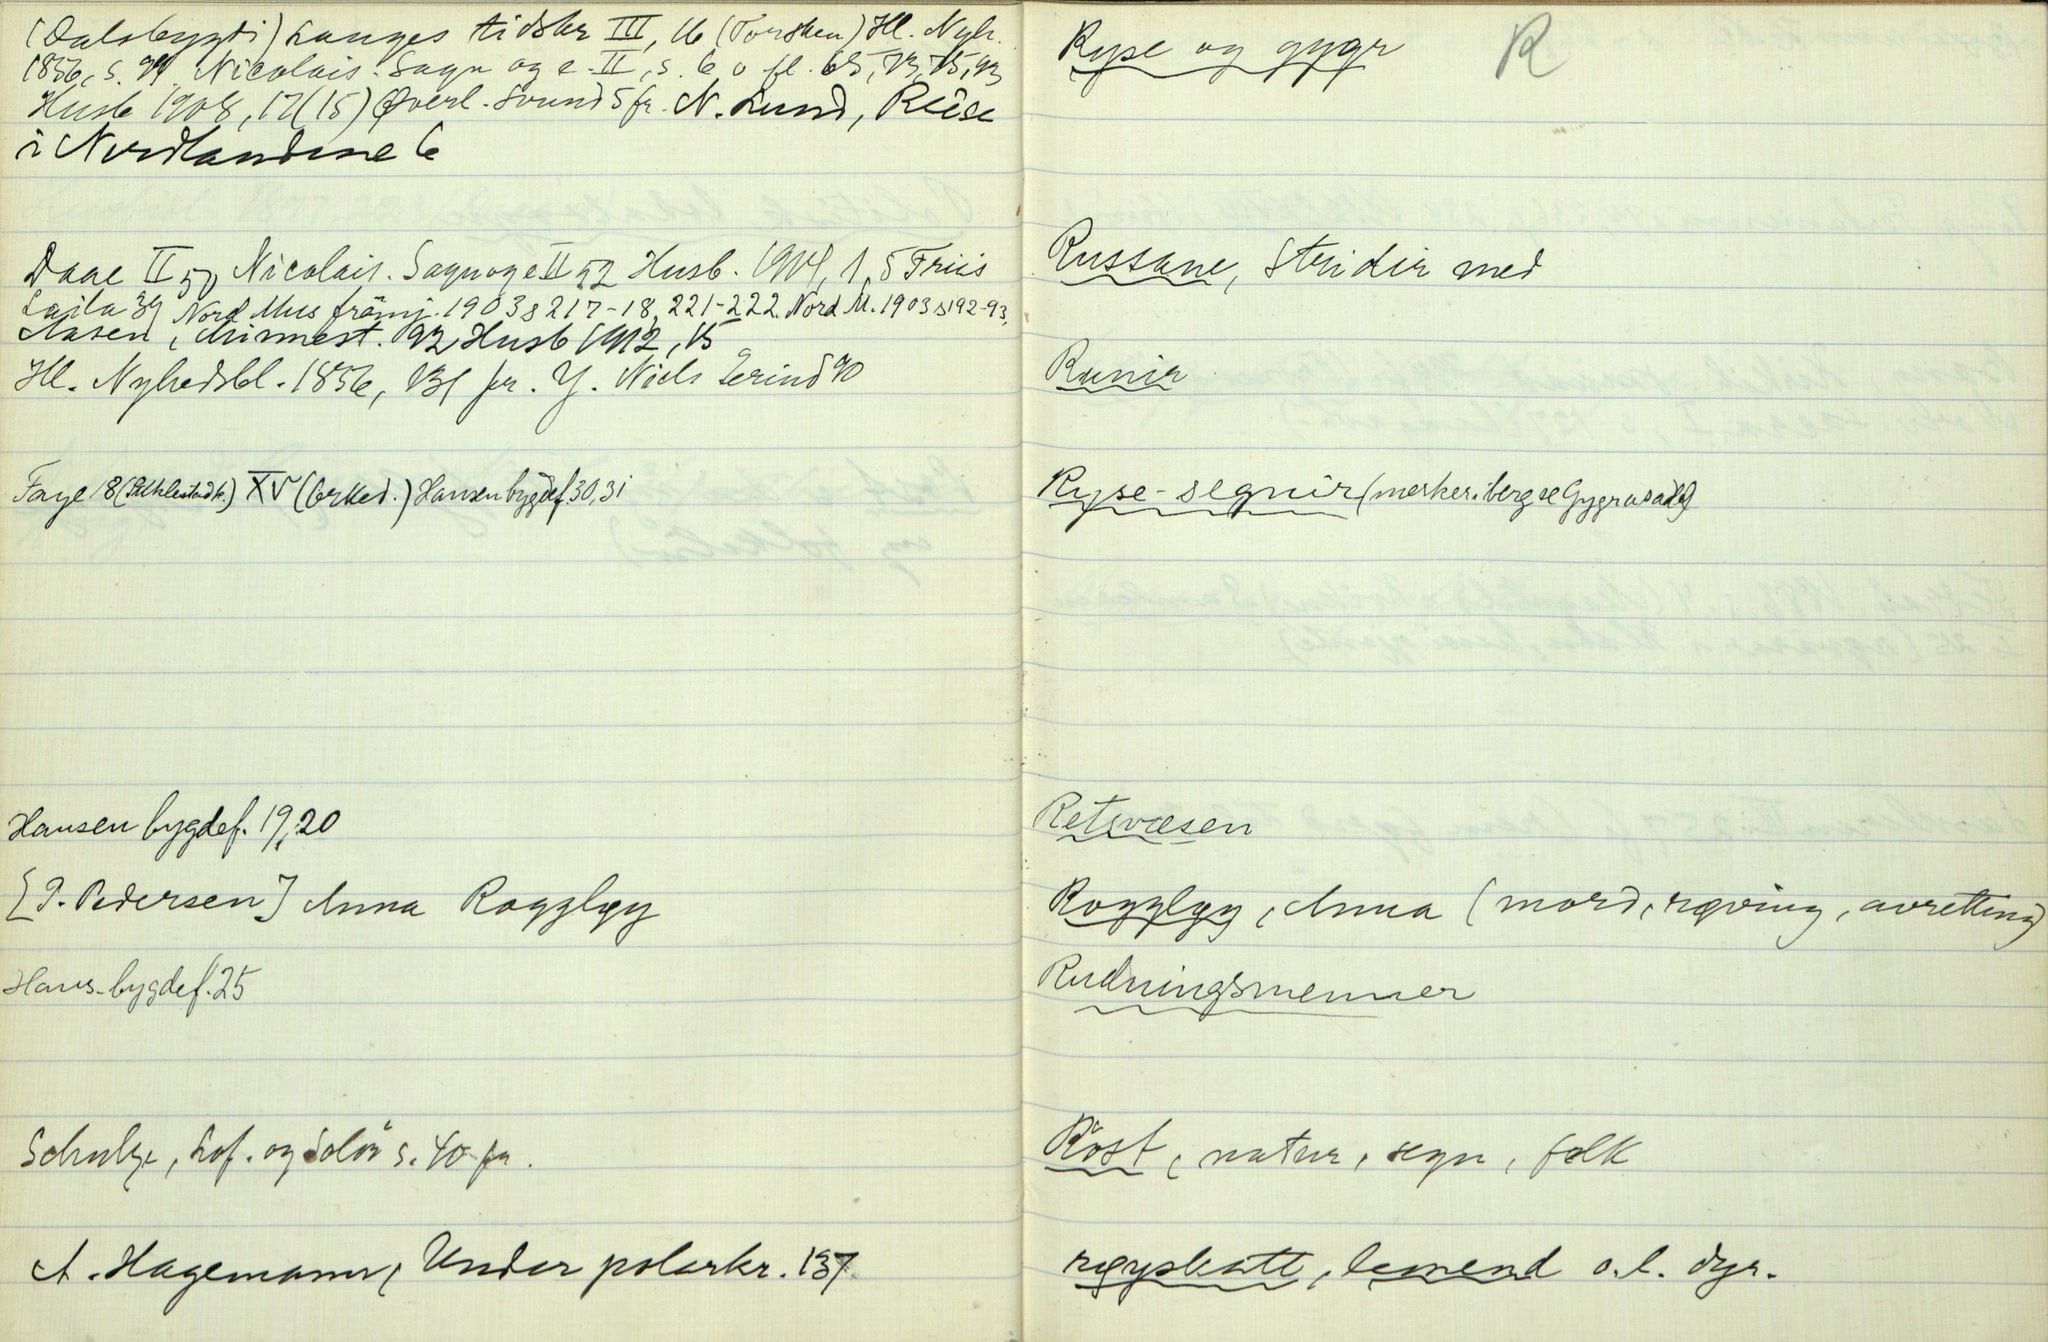 (Dalsbygdi) Langes tidskr III, 16 (Torsken) Ill. Nyh.
1856, s. 99 Nicolais. Sagn og e. II, s. 6, o fl. 65, 73, 75, 93
Husb 1908, 17(15) Øverl. Svund 5 fr. N. Lund, Reise
i Nordlandene 6
Daae II 50 Nicolais. Sagn og e II 52 Husb. 1904, 1, 5 Friis
Laila 39 Nord Mus främj. 1903 s 217-18, 221-222. Nord M. 1903 s 192-93,
Aasen, Minnest. 92 Husb 1912, 15
Ill. Nyhedsbl. 1856, 131 fr. Y. Niels 90
Faye 18 XV Hansen bygdef. 30,31
Hansen bygdef. 19,20
[P. Pedersen] Anna Rogglgy
Hans. bygdef. 25
Schulze, Lof. og Solør s. 40 fr.
A. Hagemann, Under polarkr. 137
Ryse og gygr R
Russane, Stridir med
Runir
Ryse-segnir (merker i berg se Gygrasadel)
Retsvæsen
Rogglgy, Anna (mord, røving, avretting)
Rudningsmenner
Røst, natur, segn, folk
røyskatt, lemend o.l. dyr.